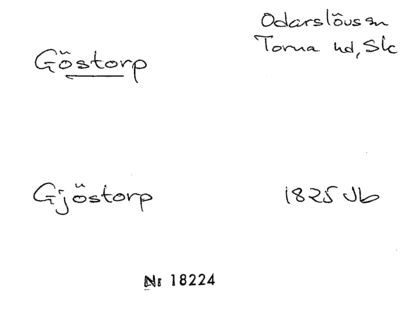 Odarslövs sn
Göstorp
Torna hd, Sk
Gjöstorp
1825 Jb
Nr 18224